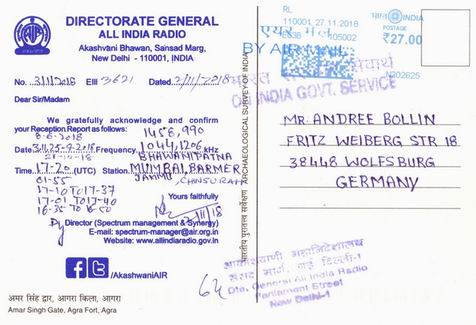 DIRECTORATE GENERAL
ALL INDIA RADIO
Akashvani Bhawan, Sansad Marg,
New Delhi - 110001, INDIA
No. 3/1/2018 EIII 3621 Dated 2/11/2018
Dear Sir/Madam
We gratefully acknowledge and confirm
your Reception Report as follows: 1458, 990
8-6-2018
Date 31,25-9-2018 Frequency 1044,1206 kHz
27-10-18 BHAWANIPATNA
Time 17-20 (UTC) Station MUMBAI, BARMER
01-55 JAMMU, CHNSURAH
17-10 TO 17-37
17-01 TO 17-40
16-35 TO 16-50
Yours faithfully
Director (Spectrum management & Synergy)
E-mail: spectrum-manager@air.org.in
Website: www.allindiaradio.gov.in
/AkashwaniAIR
अमर सिंह द्वार, आगरा किला, आगरा
Amar Singh Gate, Agra Fort, Agra
भारतीय पुरातत्व सर्वेक्षण ARCHAEOLOGICAL SURVEY OF INDIA
RL
110001, 27.11.2018
भारत INDIA
₹27.00
N202625
BY AIR MAIL
ON INDIA GOVT. SERVICE
MR. ANDREE BOLLIN
FRITZ WEIBERG STR 18
38448 WOLFSBURG
GERMANY
64
आकाशवाणी महानिदेशालय
संसद मार्ग, नई दिल्ली-1
Dte. General All India Radio
Parliament Street
New Delhi-1